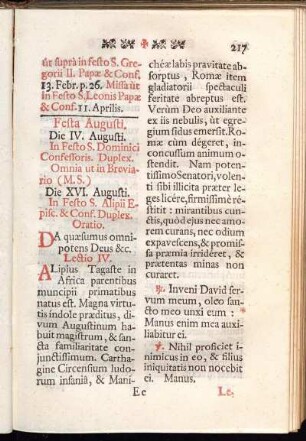 217
ùt suprà in festo S. Gre-
gorii II. Papæ & Conf.
13. Febr. p. 26. Missa ùt
in Festo S. Leonis Papæ
& Conf. 11. Aprilis.
Festa Augusti.
Die IV. Augusti.
In Festo S. Dominici
Confessoris. Duplex.
Omnia ut in Brevia-
rio (M. S.)
Die XVI. Augusti.
In Festo S. Alipii E-
pisc. & Conf. Duplex.
Oratio.
DA quæsumus omni-
potens Deus &c.
Lectio IV.
ALiplus Tagaste in
Africa parentibus
municipii primatibus
natus est. Magna virtu-
tis indole præditus, di-
vum Augustinum ha-
buit magistrum, & san-
cta familiaritate con-
junctissimum. Cartha-
gine Circensium ludo-
rum insaniâ, & Mani-
chéæ labis pravitate ab-
sorptus, Romæ item
gladiatorii spectaculi
feritate abreptus est.
Verùm Deo auxiliante
ex iis nebulis, ùt egre-
gium sidus emersit. Ro-
mæ cùm dégeret, in-
concussium animum o-
stendit. Nam poten-
tissimo Senatori, volen-
ti sibi illicita præter le-
ges licére, firmissimè ré-
stitit: mirantibus cunc-
tis, quòd ejus nec amo-
rem curans, nec odium
expavescens, & promis-
sa præmia irridéret, &
prætentas minas non
curaret.
℟. Inveni David ser-
vum meum, oleo san-
cto meo unxi eum:
Manus enim mea auxi-
liabitur ei.
℣. Nihil proficiet i-
nimicus in eo, & filius
iniquitatis non nocebit
ei. Manus.
Ee
Le-